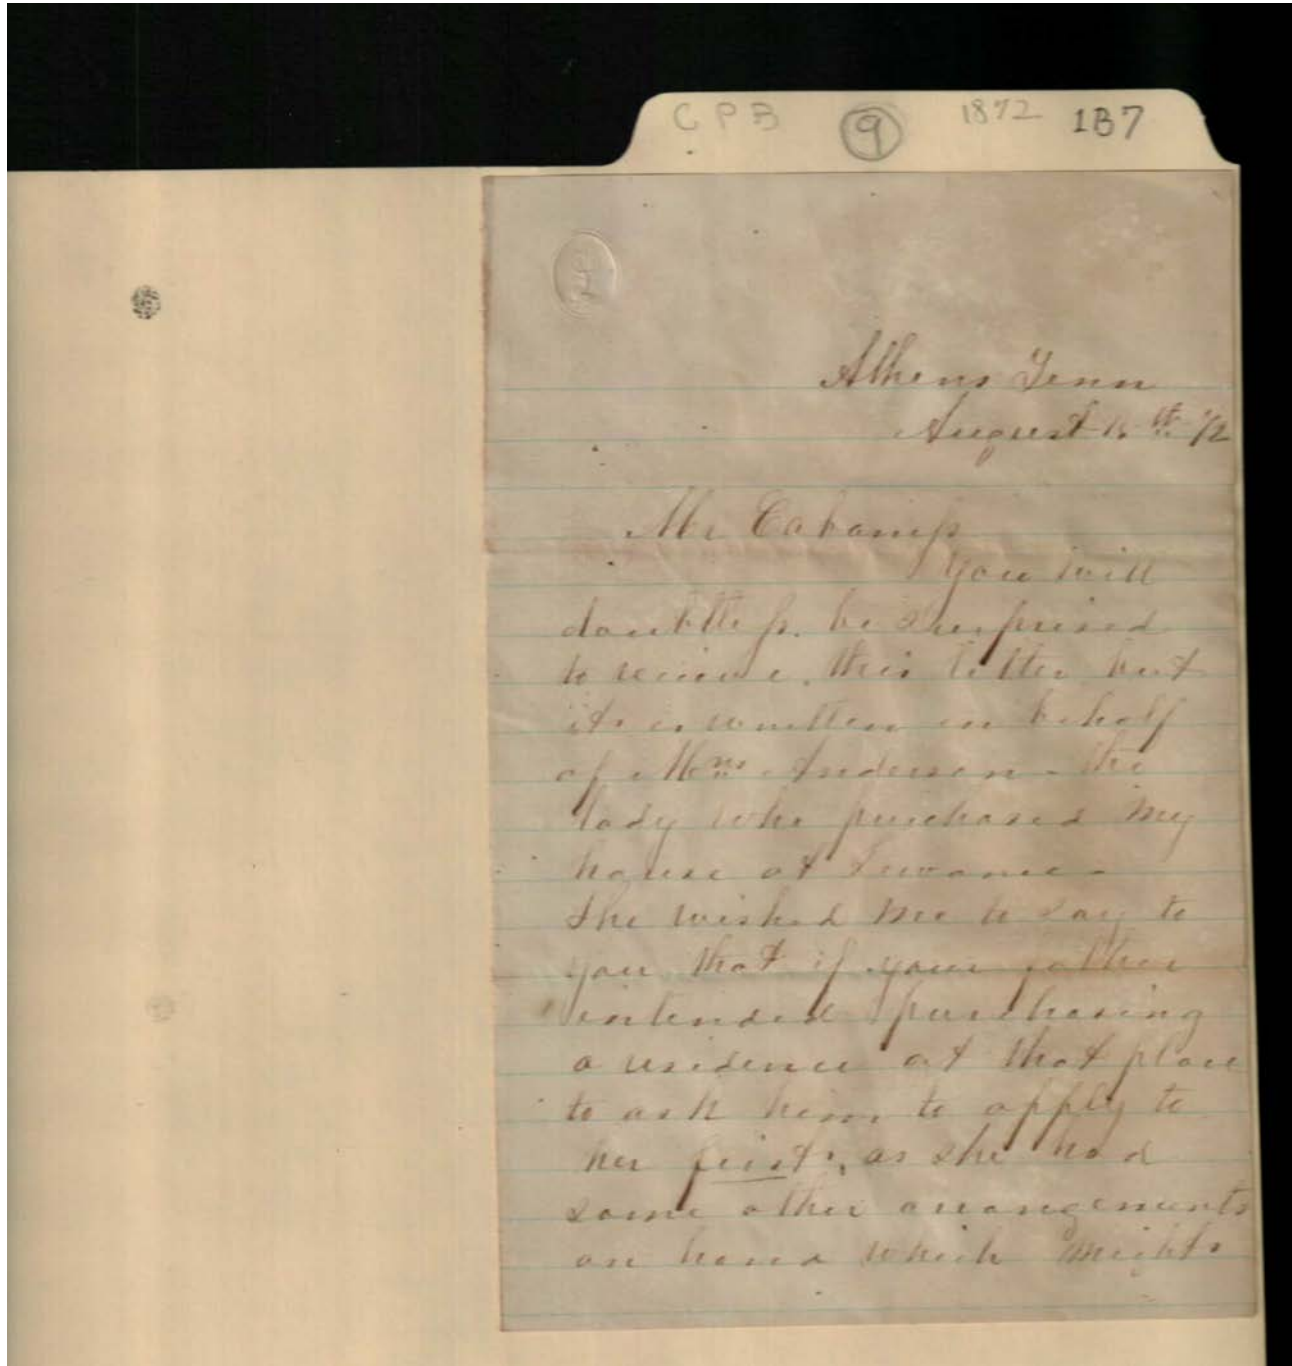 CPB 9 1872 187
Athens Tenn
August 15th 72
Mr
You will
doubtless. be surprised
to receive. this letter but
its is written in behalf
of Mrs Anderson - the
lady who purchased my
house at Sewanee -
She wished me to say to
you that if your father
intended purchasing
a residence at that place
to ask him to apply to
her first, as she had
some other arrangements
on hand which might